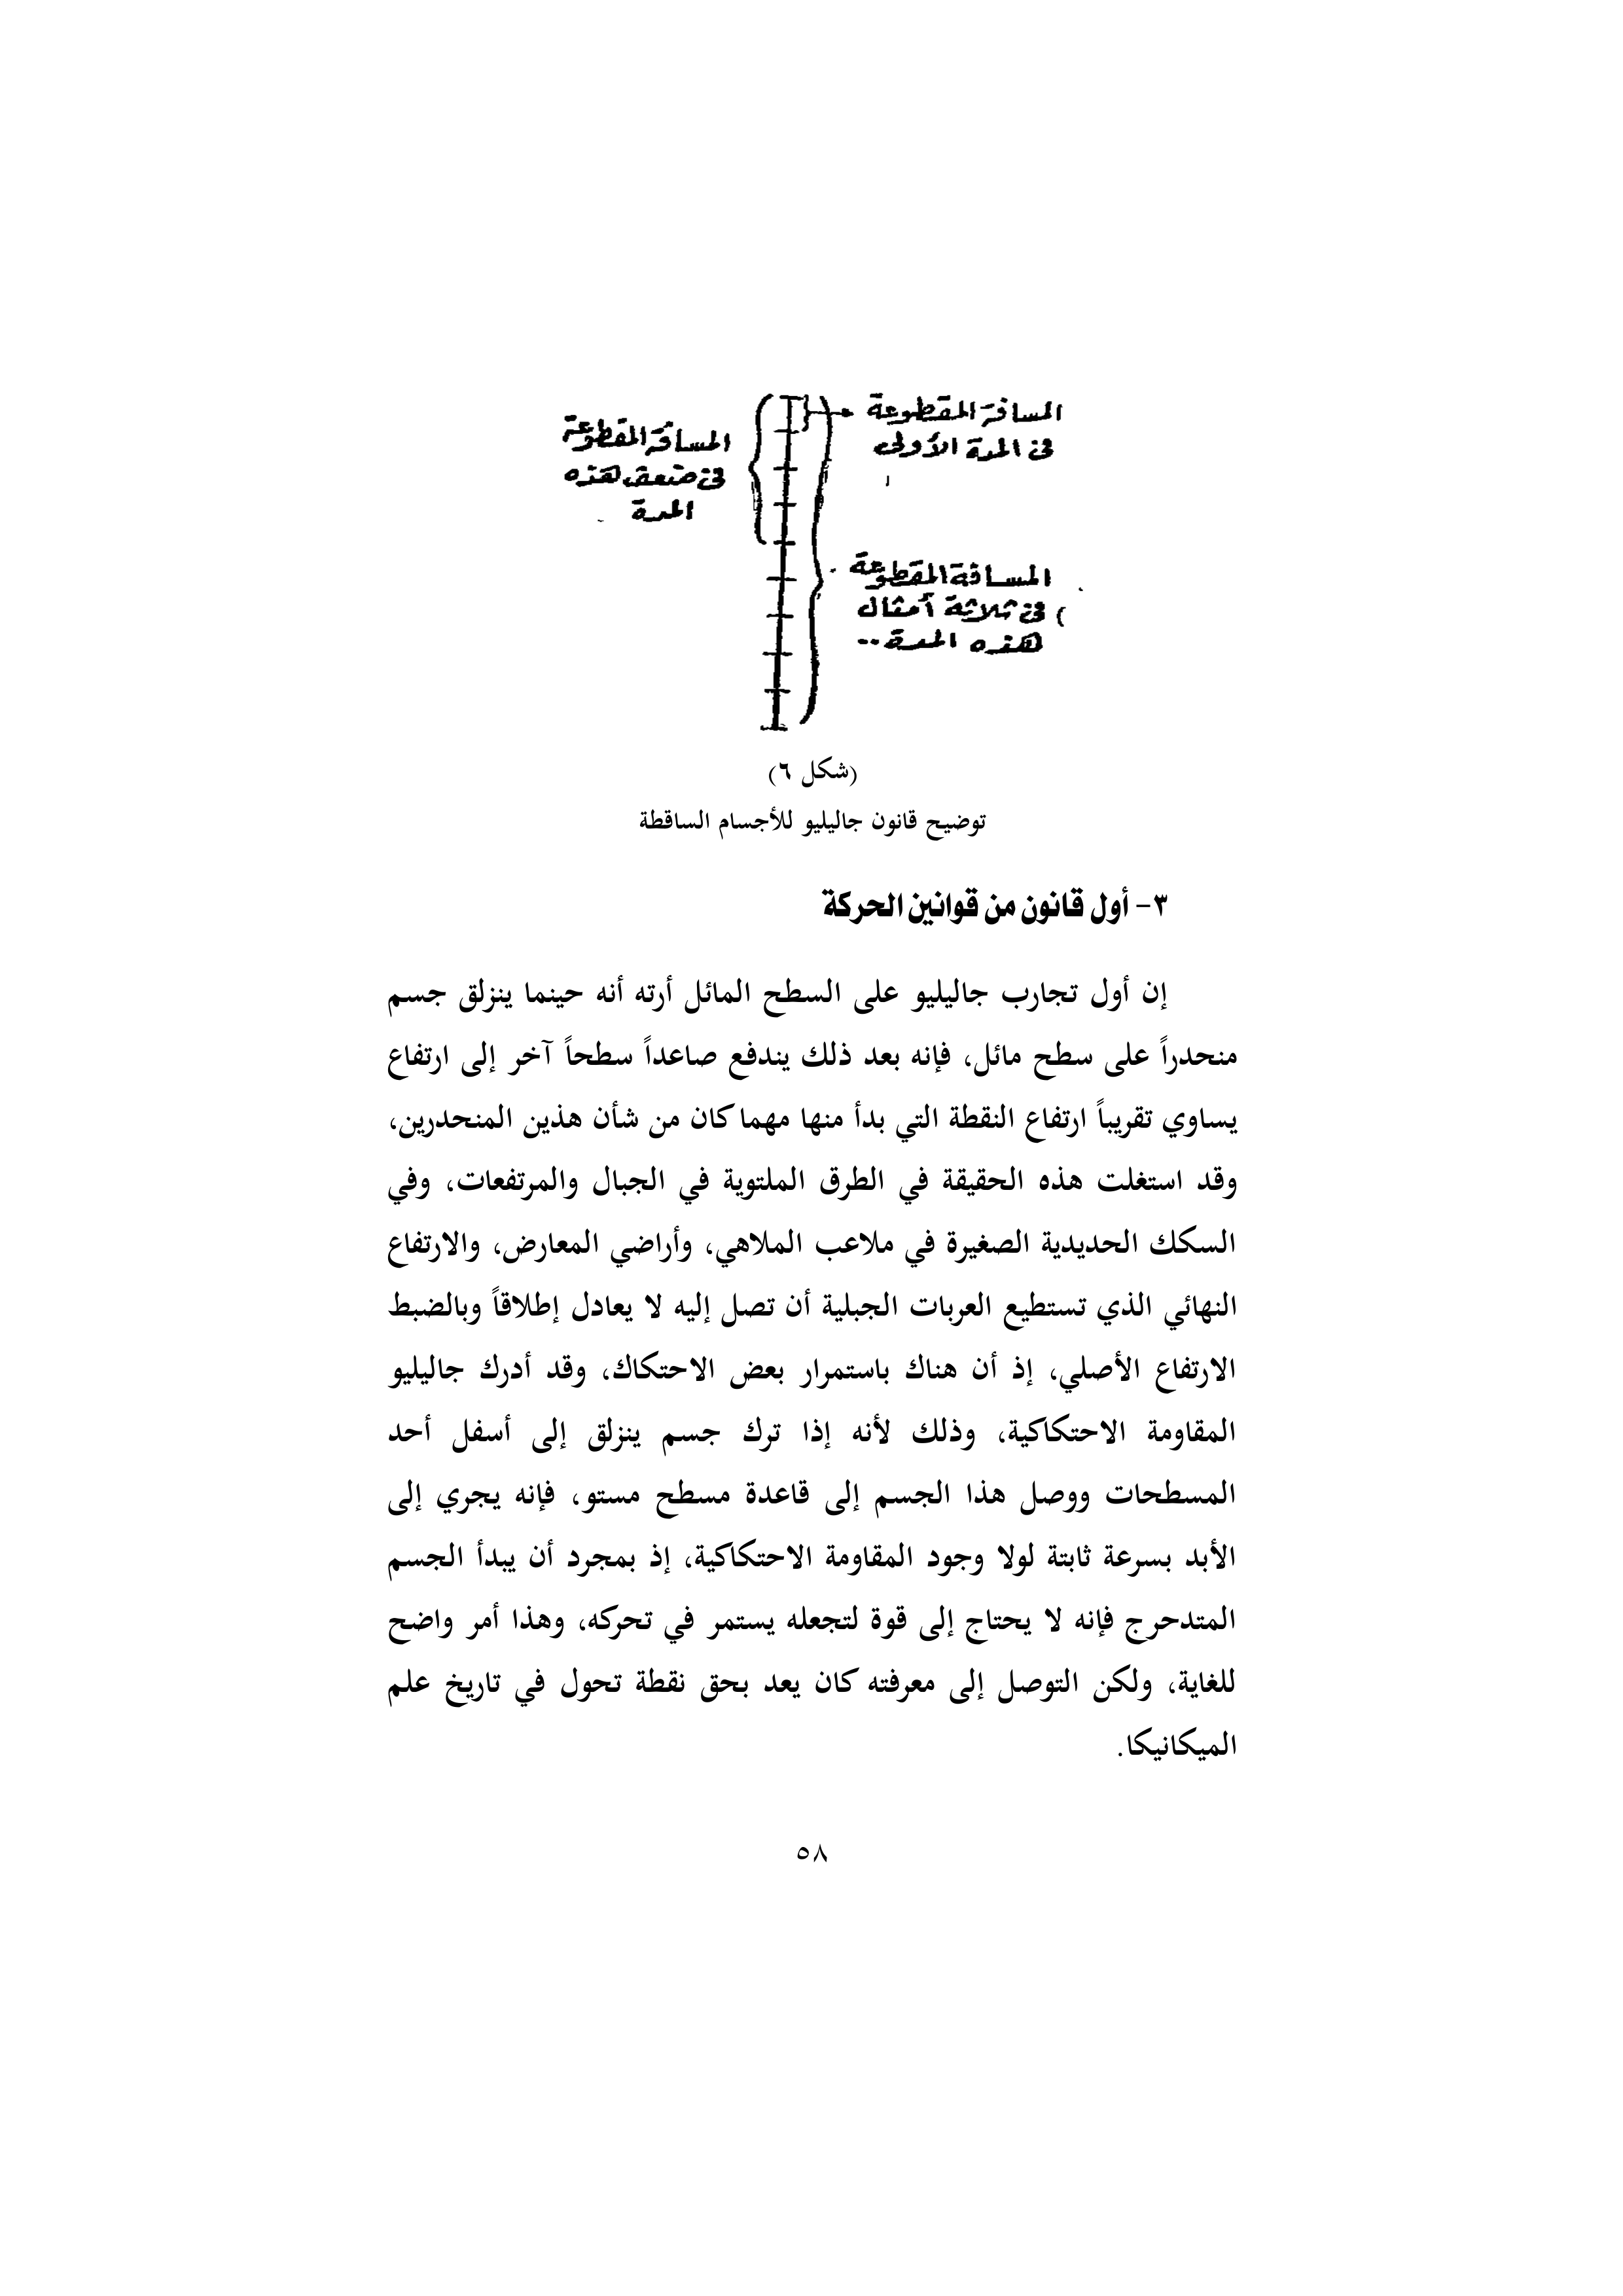 المسافة المقطوعة
فى المدة الأولى
المسافة المقطوعة
فى ضعف هذه
المدة
المسافة المقطوعة
فى ثلاثة أمثال
هذه المدة..
(شكل ٦)
توضيح قانون جاليليو للأجسام الساقطة
٣- أول قانون من قوانين الحركة
إن أول تجارب جاليليو على السطح المائل أرته أنه حينما ينزلق جسم
منحدراً على سطح مائل، فإنه بعد ذلك يندفع صاعداً سطحاً آخر إلى ارتفاع
يساوي تقريباً ارتفاع النقطة التي بدأ منها مهما كان من شأن هذين المنحدرين،
وقد استغلت هذه الحقيقة في الطرق الملتوية في الجبال والمرتفعات، وفي
السكك الحديدية الصغيرة في ملاعب الملاهي، وأراضي المعارض، والارتفاع
النهائي الذي تستطيع العربات الجبلية أن تصل إليه لا يعادل إطلاقاً وبالضبط
الارتفاع الأصلي، إذ أن هناك باستمرار بعض الاحتكاك، وقد أدرك جاليليو
المقاومة الاحتكاكية، وذلك لأنه إذا ترك جسم ينزلق إلى أسفل أحد
المسطحات ووصل هذا الجسم إلى قاعدة مسطح مستو، فإنه يجري إلى
الأبد بسرعة ثابتة لولا وجود المقاومة الاحتكاكية، إذ بمجرد أن يبدأ الجسم
المتدحرج فإنه لا يحتاج إلى قوة لتجعله يستمر في تحركه، وهذا أمر واضح
للغاية، ولكن التوصل إلى معرفته كان يعد بحق نقطة تحول في تاريخ علم
الميكانيكا.
٥٨